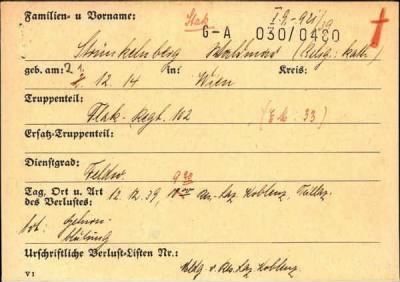 Familien- u Vorname: Flak G-A I.9.-921/19
030/0480
Strinkelnberg Waldemar (Relig: kath)
geb. am: 21. 12. 14 in: Wien Kreis:
Truppenteil:
Flak-Regt. 102 (E.M.: 33)
Ersatz-Truppenteil:
Dienstgrad:
Feldw. 9 30
Tag, Ort u Art 12. 12. 39, Res. Laz. Koblenz,
des Verlustes:
tot: Gehirn-
blutung
Urschriftliche Verlust-Listen Nr.:
Mldg v. Res. Laz. Koblenz
V 1